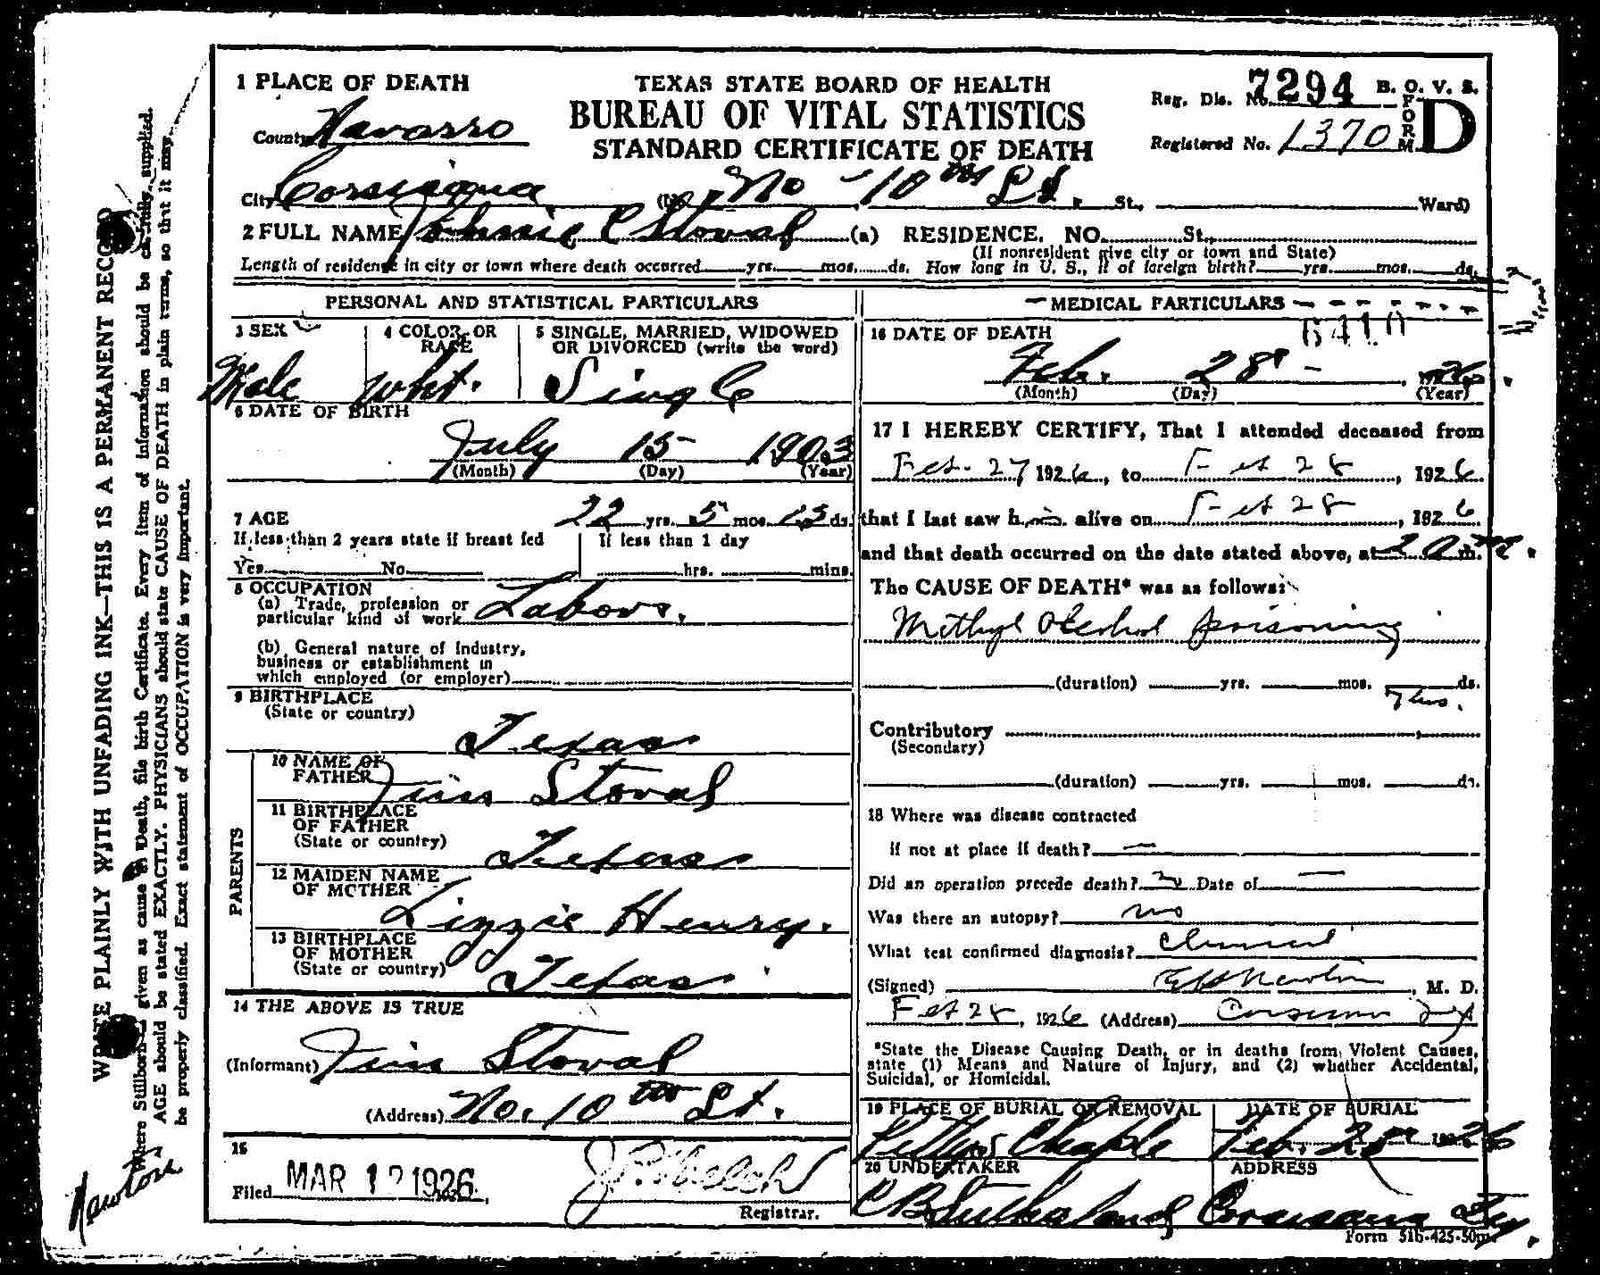 1 PLACE OF DEATH
TEXAS STATE BOARD OF HEALTH
BUREAU OF VITAL STATISTICS
STANDARD CERTIFICATE OF DEATH
Reg. Dis. No. 7294 B. O. V. S.
FORM D
Registered No. 1370
County Navarro
City Corsicana (No. No - 10th St. St., Ward)
2 FULL NAME Johnnie C Stoval (a) RESIDENCE. NO. St.,
(If nonresident give city or town and State)
Length of residence in city or town where death occurred yrs. mos. ds. How long in U. S., if of foreign birth? yrs. mos. ds.
PERSONAL AND STATISTICAL PARTICULARS
3 SEX
Male
4 COLOR OR RACE
wht.
5 SINGLE, MARRIED, WIDOWED
OR DIVORCED (write the word)
Single
6 DATE OF BIRTH
July 15 1903
(Month) (Day) (Year)
7 AGE 22 yrs. 5 mos. 13 ds.
If less than 2 years state if breast fed
Yes No
If less than 1 day
hrs. mins.
8 OCCUPATION
(a) Trade, profession or
particular kind of work Labor.
(b) General nature of Industry,
business or establishment in
which employed (or employer)
9 BIRTHPLACE
(State or country)
Texas
PARENTS
10 NAME OF
FATHER Jim Stoval
11 BIRTHPLACE
OF FATHER
(State or country) Texas
12 MAIDEN NAME
OF MOTHER Lizzie Henry.
13 BIRTHPLACE
OF MOTHER
(State or country) Texas
14 THE ABOVE IS TRUE
(Informant) Jim Stoval
(Address) No. 10th St.
15
Filed MAR 12 1926
J. P. Welch
Registrar.
MEDICAL PARTICULARS
16 DATE OF DEATH
Feb. 28 - 26
(Month) (Day) (Year)
17 I HEREBY CERTIFY, That I attended deceased from
Feb. 27 1926, to Feb 28, 1926
that I last saw him alive on Feb 28, 1926
and that death occurred on the date stated above, at m.
The CAUSE OF DEATH* was as follows:
Methyl Alcohol poisoning
(duration) yrs. mos. ds.
7 hrs.
Contributory
(Secondary)
(duration) yrs. mos. ds.
18 Where was disease contracted
if not at place if death? —
Did an operation precede death? no Date of —
Was there an autopsy? no
What test confirmed diagnosis? Clinical
(Signed) Newton, M. D.
Feb 28, 1926 (Address) Corsicana Tex
*State the Disease Causing Death, or in deaths from Violent Causes,
state (1) Means and Nature of Injury, and (2) whether Accidental,
Suicidal, or Homicidal.
19 PLACE OF BURIAL OR REMOVAL
Pettys Chaple
DATE OF BURIAL
Feb. 28 1926
20 UNDERTAKER
C B Sutherland
ADDRESS
Corsicana Tex.
Form 51b-425-50m.
WRITE PLAINLY WITH UNFADING INK—THIS IS A PERMANENT RECORD
Where Stillborn is given as cause of Death, file birth Certificate. Every item of information should be carefully supplied.
AGE should be stated EXACTLY. PHYSICIANS should state CAUSE OF DEATH in plain terms, so that it may
be properly classified. Exact statement of OCCUPATION is very important.
Newton